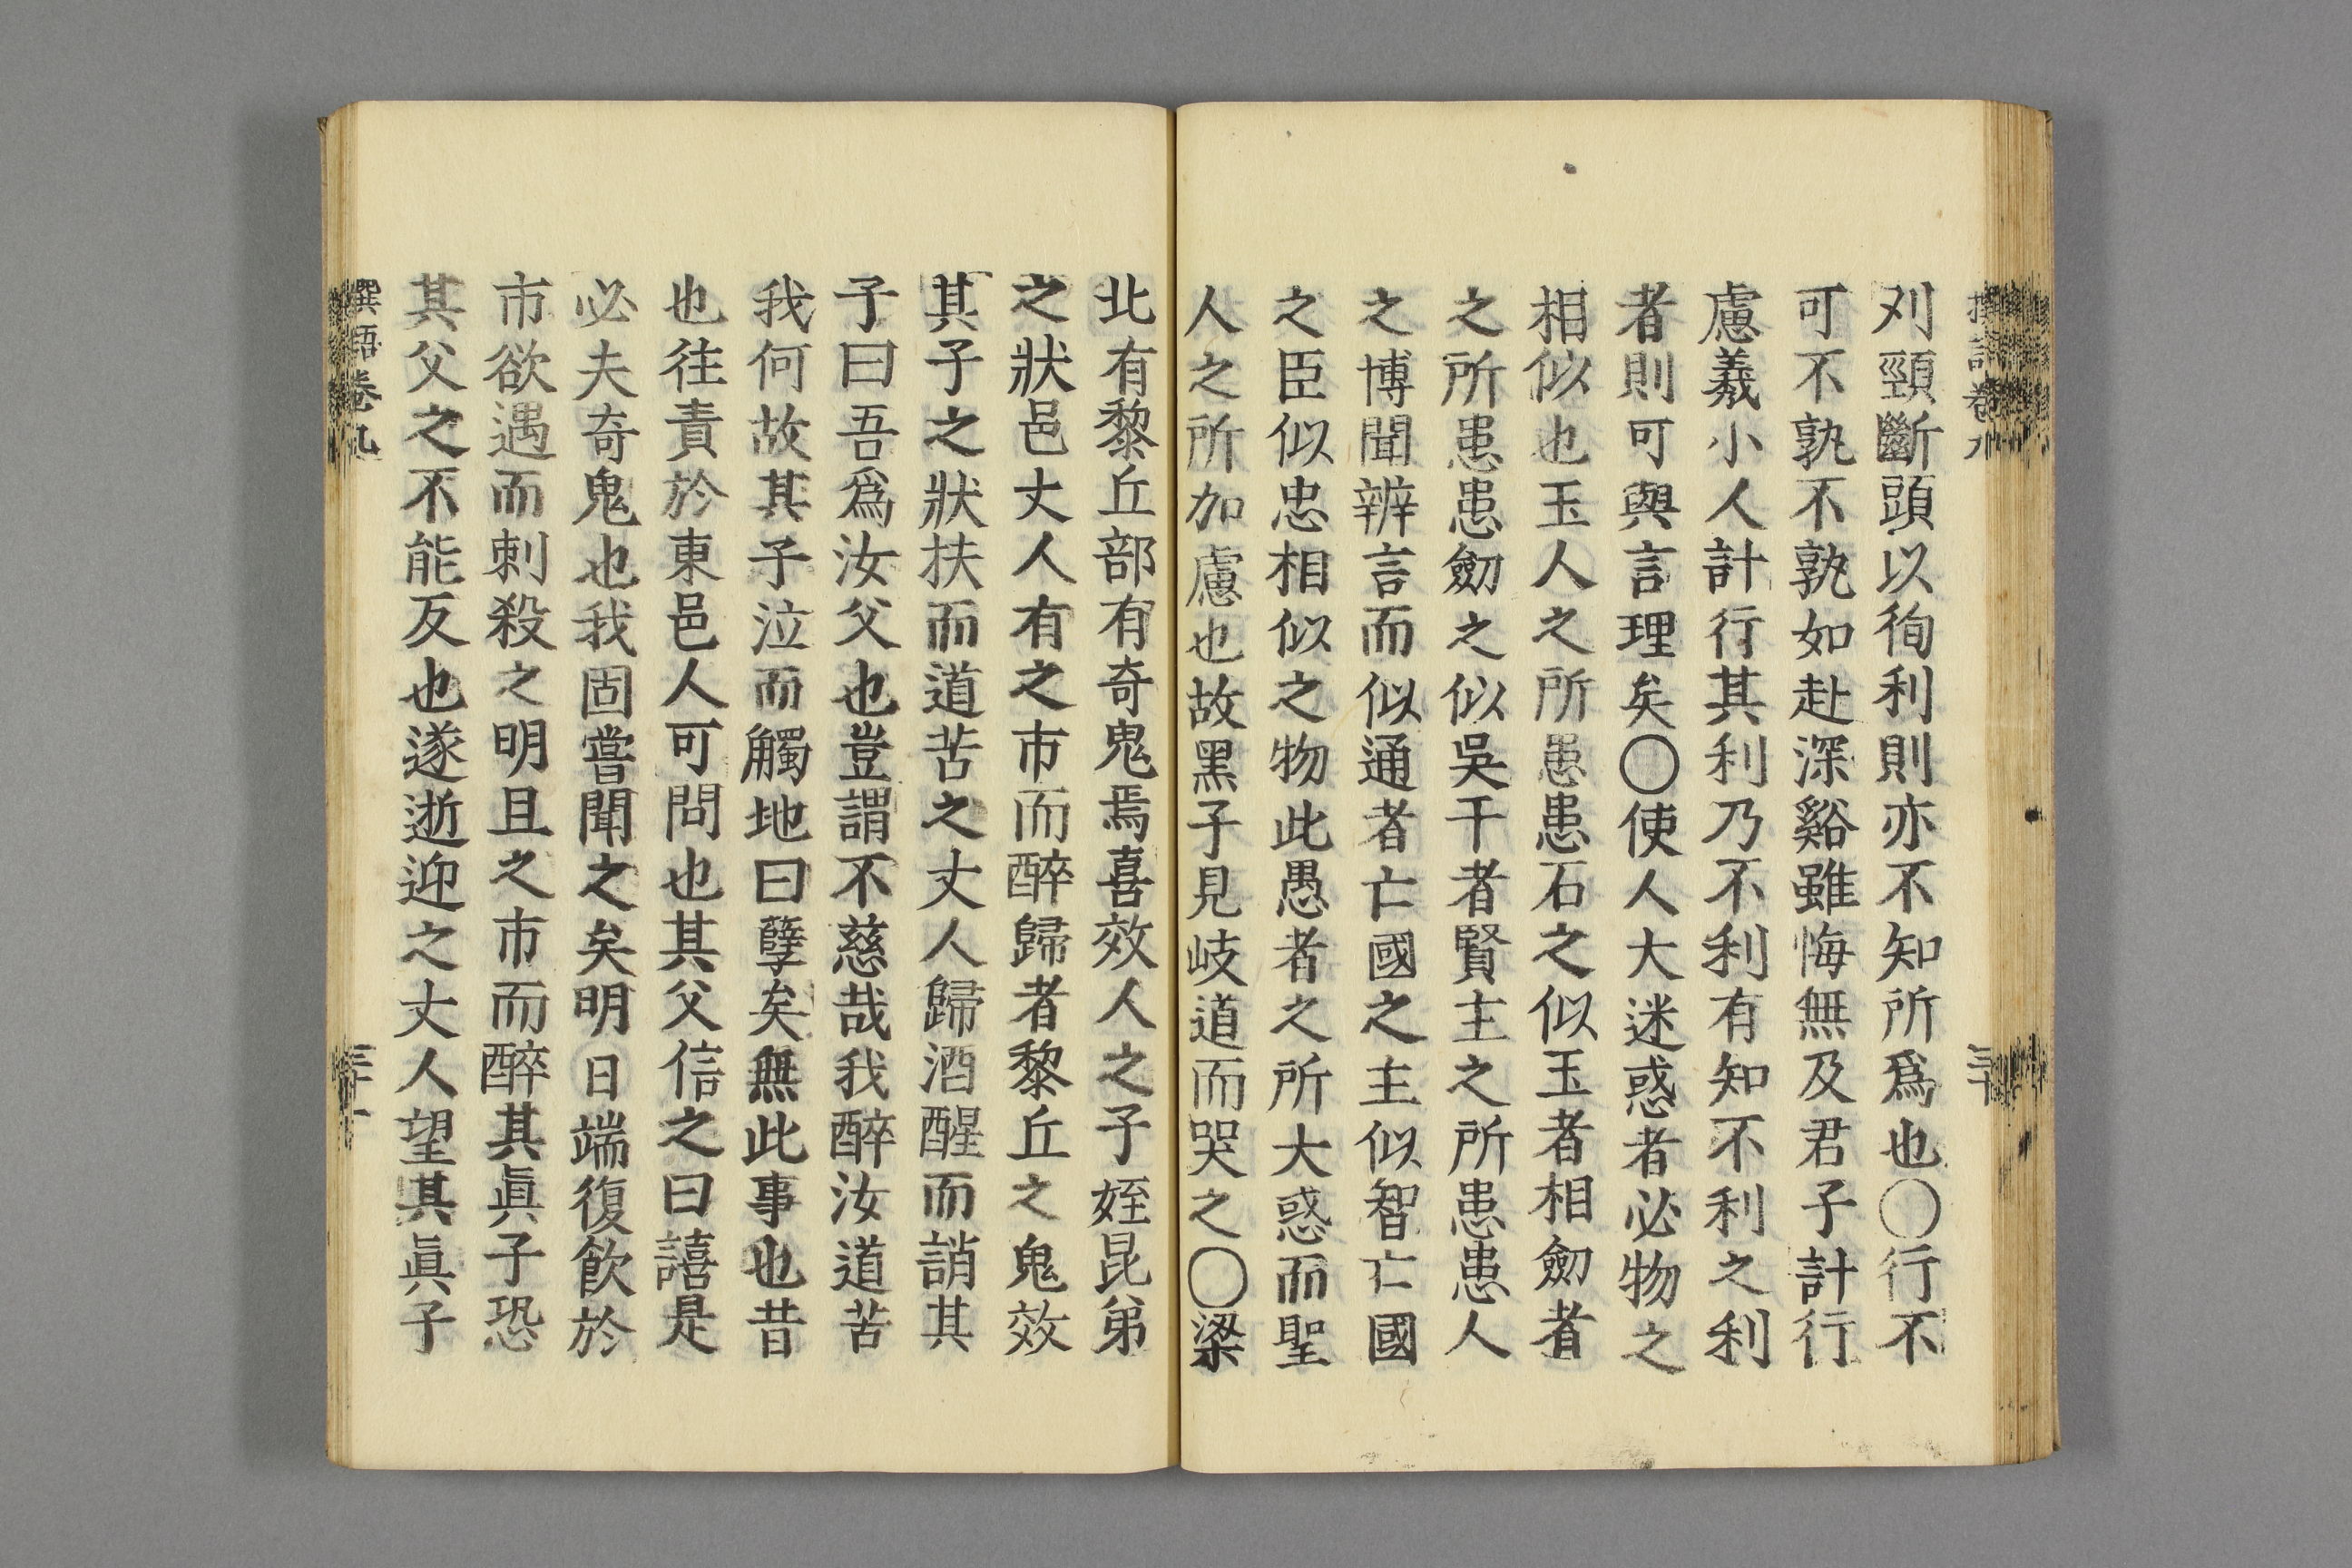 刈頸斷頭以徇利則亦不知所爲也〇行不
可不孰不孰如赴深谿雖悔無及君子計行
慮義小人計行其利乃不利有知不利之利
者則可與言理矣〇使人大迷惑者必物之
相似也玉人之所患患石之似玉者相劒者
之所患患劒之似吳干者賢主之所患患人
之博聞辨言而似通者亡國之主似智亡國
之臣似忠相似之物此愚者之所大惑而聖
人之所加慮也故墨子見岐道而哭之〇梁
北有黎丘部有奇鬼焉喜效人之子姪昆弟
之狀邑丈人有之市而醉歸者黎丘之鬼效
其子之狀扶而道苦之丈人歸酒醒而誚其
子曰吾爲汝父也豈謂不慈哉我醉汝道苦
我何故其子泣而觸地曰孽矣無此事也昔
也往責於東邑人可問也其父信之曰譆是
必夫奇鬼也我固嘗聞之矣明日端復飮於
市欲遇而刺殺之明且之市而醉其眞子恐
其父之不能反也遂逝迎之丈人望其眞子
撰語卷九
三十一